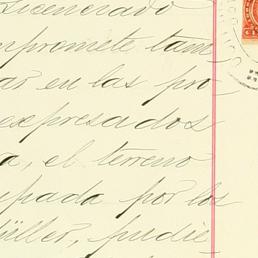 Licenciado
mpromete tam
ar en las pro
expresados
a, el terreno
upada por los
üller, pudie